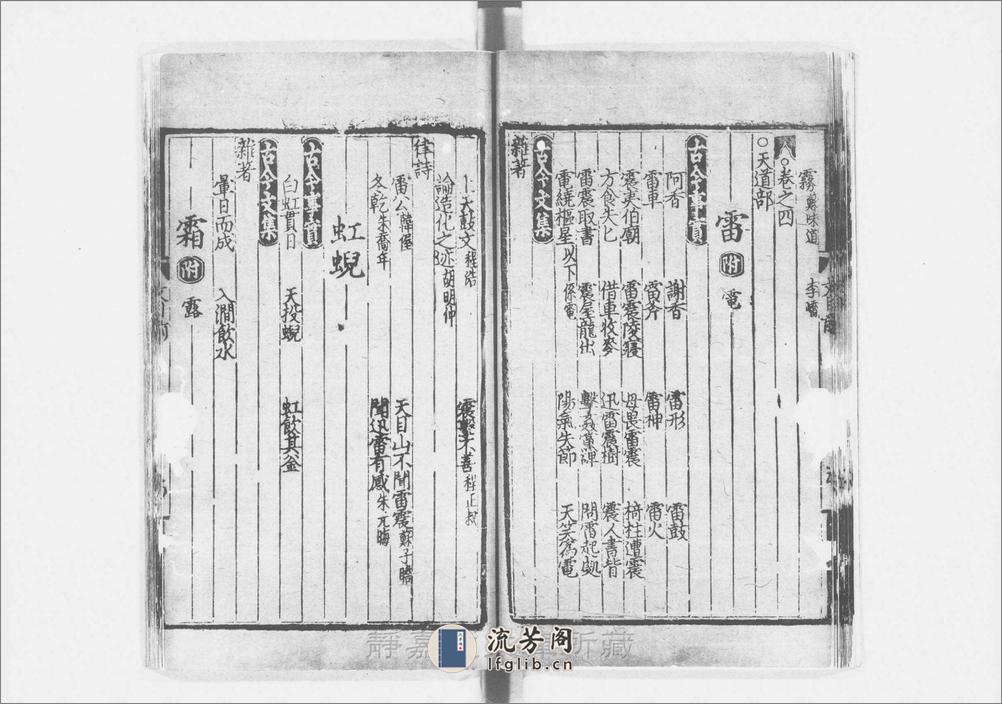 霧 蘇味道 李嶠
○卷之四
○天道部
雷 附 電
古今事實
阿香 謝香 雷形 雷鼓
雷車 雷斧 雷神 雷火
震夷伯廟 雷震陵寢 毋畏雷震 椅柱遭震
方食失匕 借車收麥 迅雷震樹 震人書背
雷震取書 震屋龍出 擊姦 問雷起處
電繞樞星以下係電 陽氣失節 天笑為電
古今文集
雜著
上天鼓文程浩 震擊不善程正叔
論造化之迹胡明仲
律詩
雷公 天目山不聞雷震蘇子瞻
冬乾朱喬年 聞迅雷有感朱元晦
虹蜺
古今事實
白虹貫日 天投蜺 虹飲其釜
古今文集
雜著
暈日而成 入澗飲水
霜 附 露
靜嘉 所藏
流芳阁
lfglib.cn